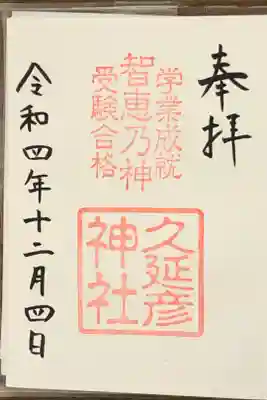 奉拝
学業成就
智恵乃神
受験合格
久延彦
神社
令和四年十二月四日